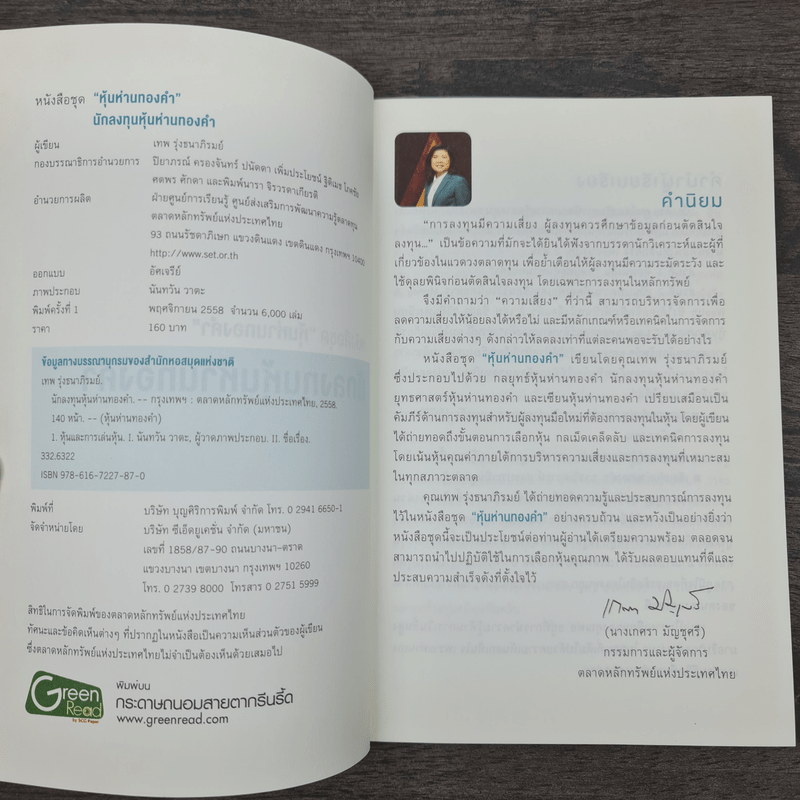 หนังสือชุด “หุ้นห่านทองคำ”
นักลงทุนหุ้นห่านทองคำ
ผู้เขียน เทพ รุ่งธนาภิรมย์
กองบรรณาธิการอำนวยการ ปิยาภรณ์ ครองจันทร์ ปนัดดา เพิ่มประโยชน์ ฐิติเมธ โภคชัย
ศตพร ศักดา และพิมพ์นารา จิรวรดาเกียรติ
อำนวยการผลิต ฝ่ายศูนย์การเรียนรู้ ศูนย์ส่งเสริมการพัฒนาความรู้ตลาดทุน
ตลาดหลักทรัพย์แห่งประเทศไทย
93 ถนนรัชดาภิเษก แขวงดินแดง เขตดินแดง กรุงเทพฯ 10400
http://www.set.or.th
ออกแบบ อัศเจรีย์
ภาพประกอบ นันทวัน วาตะ
พิมพ์ครั้งที่ 1 พฤศจิกายน 2558 จำนวน 6,000 เล่ม
ราคา 160 บาท
ข้อมูลทางบรรณานุกรมของสำนักหอสมุดแห่งชาติ
เทพ รุ่งธนาภิรมย์.
นักลงทุนหุ้นห่านทองคำ. -- กรุงเทพฯ : ตลาดหลักทรัพย์แห่งประเทศไทย, 2558.
140 หน้า. -- (หุ้นห่านทองคำ)
1. หุ้นและการเล่นหุ้น. I. นันทวัน วาตะ, ผู้วาดภาพประกอบ. II. ชื่อเรื่อง.
332.6322
ISBN 978-616-7227-87-0
พิมพ์ที่ บริษัท บุญศิริการพิมพ์ จำกัด โทร. 0 2941 6650-1
จัดจำหน่ายโดย บริษัท ซีเอ็ดยูเคชั่น จำกัด (มหาชน)
เลขที่ 1858/87-90 ถนนบางนา-ตราด
แขวงบางนา เขตบางนา กรุงเทพฯ 10260
โทร. 0 2739 8000 โทรสาร 0 2751 5999
สิทธิในการจัดพิมพ์ของตลาดหลักทรัพย์แห่งประเทศไทย
ทัศนะและข้อคิดเห็นต่างๆ ที่ปรากฏในหนังสือเป็นความเห็นส่วนตัวของผู้เขียน
ซึ่งตลาดหลักทรัพย์แห่งประเทศไทยไม่จำเป็นต้องเห็นด้วยเสมอไป
Green
Read
by SCG Paper
พิมพ์บน
กระดาษถนอมสายตากรีนรี้ด
www.greenread.com
คำนิยม
“การลงทุนมีความเสี่ยง ผู้ลงทุนควรศึกษาข้อมูลก่อนตัดสินใจ
ลงทุน...” เป็นข้อความที่มักจะได้ยินได้ฟังจากบรรดานักวิเคราะห์และผู้ที่
เกี่ยวข้องในแวดวงตลาดทุน เพื่อย้ำเตือนให้ผู้ลงทุนมีความระมัดระวัง และ
ใช้ดุลยพินิจก่อนตัดสินใจลงทุน โดยเฉพาะการลงทุนในหลักทรัพย์
จึงมีคำถามว่า “ความเสี่ยง” ที่ว่านี้ สามารถบริหารจัดการเพื่อ
ลดความเสี่ยงให้น้อยลงได้หรือไม่ และมีหลักเกณฑ์หรือเทคนิคในการจัดการ
กับความเสี่ยงต่างๆ ดังกล่าวให้ลดลงเท่าที่แต่ละคนพอจะรับได้อย่างไร
หนังสือชุด “หุ้นห่านทองคำ” เขียนโดยคุณเทพ รุ่งธนาภิรมย์
ซึ่งประกอบไปด้วย กลยุทธ์หุ้นห่านทองคำ นักลงทุนหุ้นห่านทองคำ
ยุทธศาสตร์หุ้นห่านทองคำ และเซียนหุ้นห่านทองคำ เปรียบเสมือนเป็น
คัมภีร์ด้านการลงทุนสำหรับผู้ลงทุนมือใหม่ที่ต้องการลงทุนในหุ้น โดยผู้เขียน
ได้ถ่ายทอดถึงขั้นตอนการเลือกหุ้น กลเม็ดเคล็ดลับ และเทคนิคการลงทุน
โดยเน้นหุ้นคุณค่าภายใต้การบริหารความเสี่ยงและการลงทุนที่เหมาะสม
ในทุกสภาวะตลาด
คุณเทพ รุ่งธนาภิรมย์ ได้ถ่ายทอดความรู้และประสบการณ์การลงทุน
ไว้ในหนังสือชุด “หุ้นห่านทองคำ” อย่างครบถ้วน และหวังเป็นอย่างยิ่งว่า
หนังสือชุดนี้จะเป็นประโยชน์ต่อท่านผู้อ่านได้เตรียมความพร้อม ตลอดจน
สามารถนำไปปฏิบัติใช้ในการเลือกหุ้นคุณภาพ ได้รับผลตอบแทนที่ดีและ
ประสบความสำเร็จดังที่ตั้งใจไว้
(นางเกศรา มัญชุศรี)
กรรมการและผู้จัดการ
ตลาดหลักทรัพย์แห่งประเทศไทย